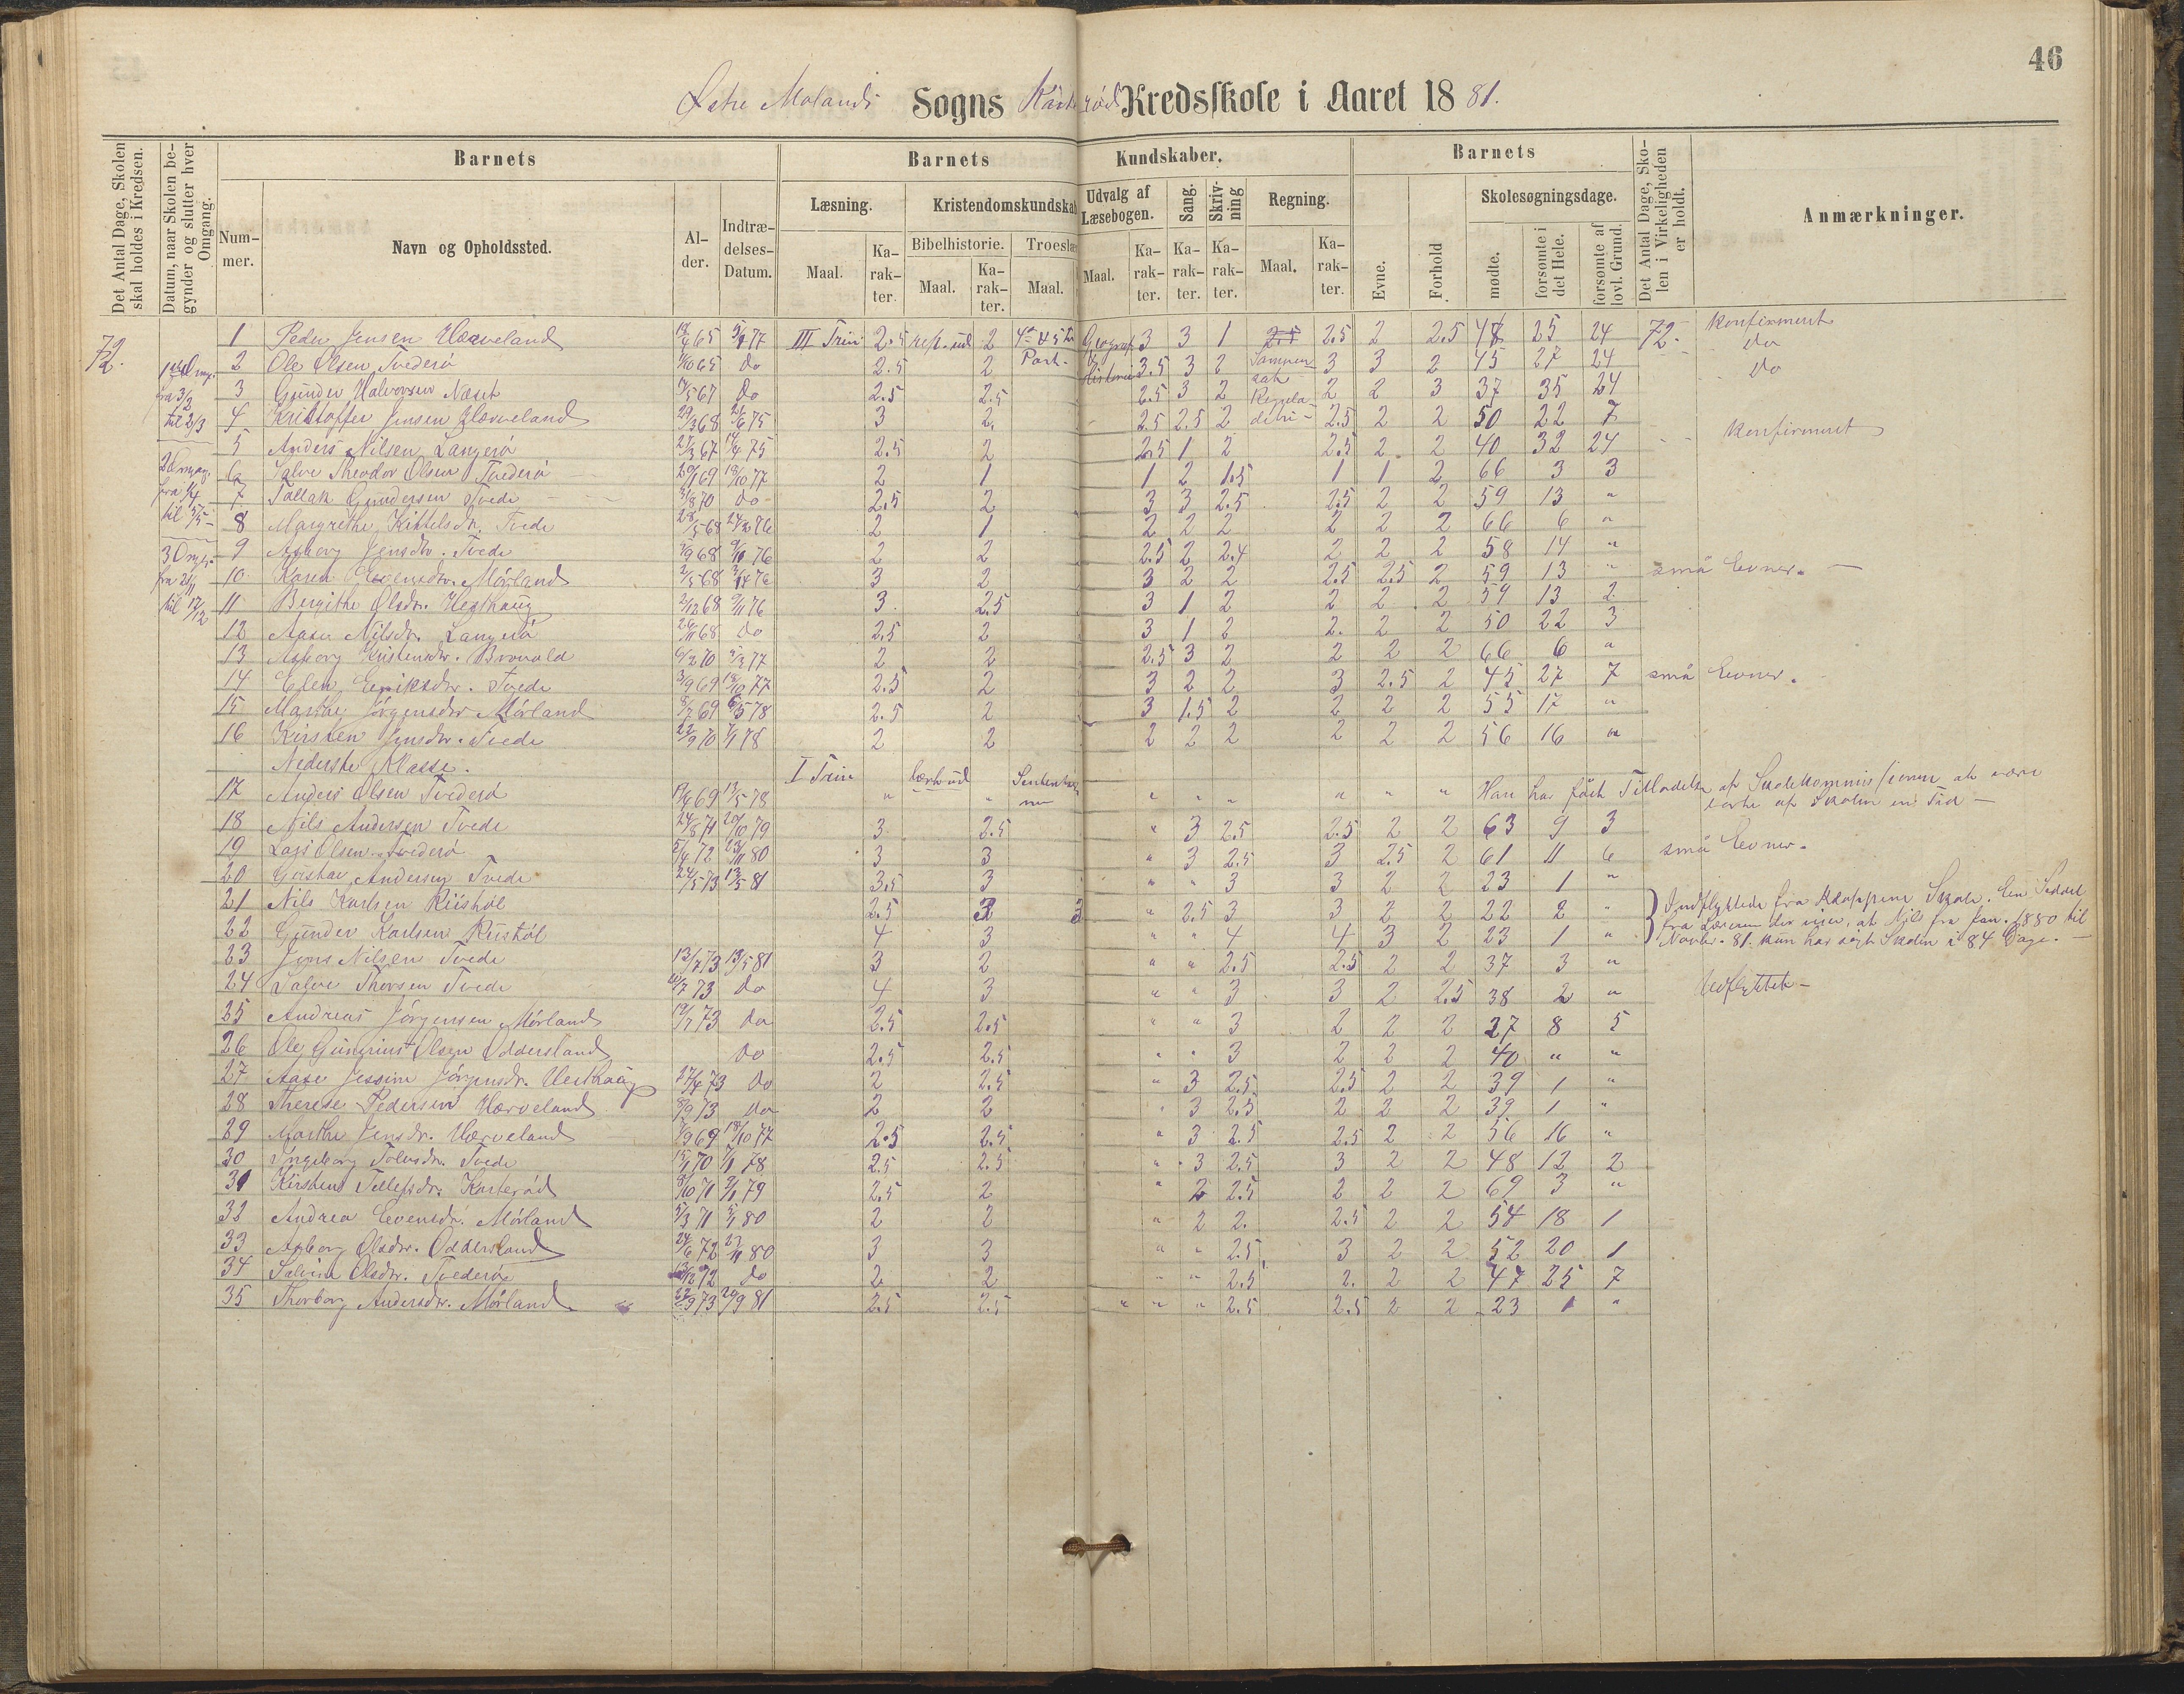 46
Østre Molands Sogns Kasterød Kredsskole i Aaret 1881.
Det Antal Dage, Skolen skal holdes i Kredsen.
Datum, naar Skolen begynder og slutter hver Omgang.
Barnets
Barnets Kundskaber.
Barnets
Det Antal Dage, Skolen i Virkeligheden er holdt.
Anmærkninger.
Nummer.
Navn og Opholdssted.
Alder.
Indtrædelses-Datum.
Læsning.
Kristendomskundskab
Udvalg af Læsebogen.
Sang.
Skrivning
Regning.
Evne.
Forhold
Skolesøgningsdage.
Maal.
Karakter.
Bibelhistorie.
Troeslær
Maal.
Karakter.
Maal.
Maal.
Karakter.
Karakter.
Karakter.
Maal.
Karakter.
mødte.
forsømte i det Hele.
forsømte af lovl. Grund.
72.
1ste Omg. fra 3/2 til 2/3
2 Omgag. fra 1/4 til 5/5
3 Omg. fra 21/11 til 17/12
1 Peder Jensen Hærveland 65 5/1 77 III Trin 2.5 rep. ud 2 4de & 5te Geograf 3 3 1 2.5 2.5 2 2.5 48 25 24 72. Konfirmeret
2 Ole Olsen Tvederø 65 do 2.5 2 Part. & Historie 3.5 3 2 3 3 2 45 27 24 do
3 Gunder Halvorsen Næset 67 do 2.5 2.5 2.5 3 2 Reguladetri 2 2 3 37 35 24 do
4 Kristoffer Jensen Hærveland 29/3 68 75 3 2. 2.5 2.5 2 2.5 2 2 50 22 7
5 Anders Nilsen Langerø 67 75 2.5 2 2.5 1 2 2.5 2 2 40 32 24 Konfirmeret
6 Salve Theodor Olsen Tvederø 20/1 69 18/10 77 2 1 1 2 1.5 1 1 2 66 3 3
7 Tallak Gundersen Tvede 70 do 2.5 2 3 3 2.5 2.5 2 2 59 13 "
8 Margrethe Kittelsdr. Tvede 68 76 2 1 2 2 2 2 2 2 66 6 "
9 Asborg Jensdr. Tvede 68 76 2 2 2.5 2 2.4 2 2 2 58 14 "
10 Karen Mørland 68 76 3 2 3 2 2 2.5 2.5 2 59 13 " små Evner. —
11 Bergithe Olsdr. Hesthaug 2/12 68 76 3. 2.5 3 1 2 2 2 2 59 13 2
12 Aase Nilsdr. Langerø 68 do 2.5 2 3 1 2 2. 2 2 50 22 3
13 Asborg Kristensdr. Bronald 6/2 70 77 2 2 2.5 3 2 2 2 2 66 6 "
14 Elen Eeriksdr. Tvede 3/9 69 18/10 77 2.5 2 3 2 2 3 2.5 2 45 27 7 små Evner.
15 Marthe Jørgensdr Mørland 69 78 2.5 2 3 1.5 2 2 2 2 55 17 "
16 Kirsten Jensdr. Tvede 22/9 70 7/1 78 2 2 2 2 2 2 2 2 56 16 "
Nederste Klasse.
17 Anders Olsen Tvederø 69 13/5 78 I Trin " lært ud " " " " " " " Han har fået Tilladelse af Skolekommissionen at være borte af Skolen en Tid —
18 Nils Andersen Tvede 24/8 71 20/10 79 3 2.5 " 3 2.5 2.5 2 2 63 9 3
19 Lars Olsen Tvederø 72 23/11 80 3 3 " 3 2.5 3 2.5 2 61 11 6 små Evner.
20 Gustav Andersen Tvede 24/5 73 13/5 81 3.5 3 " " 3 3 2 2 23 1 "
21 Nils Karlsen Riishøl 2.5 3 3 " 2.5 3 3 2 2 22 2 " Indflyttede fra Skole. En Seddel
22 Gunder Karlsen Riishøl 4 3 " " 4 4 3 2 23 1 " fra Læreren der viser, at Nils fra Jan. 1880 til Novbr. 81. kun har søgt Skolen i 84 Dage. —
23 Jens Nilsen Tvede 12/7 73 13/5 81 3 2 " " 2.5 2.5 2 2 37 3 "
24 Salve Thorsen Tvede 73 do 4 3 " " 3 3 2 2.5 38 2 " Udflyttet —
25 Andreas Jørgensen Mørland 73 do 2.5 2.5 " " 3 2 2 2 27 8 5
26 Ole Gunerius Olsen Oddersland do 2.5 2.5 " " 3 2 2 2 40 " "
27 Aase Jessine Jørgensdr. Hesthaug 27/4 73 do 2 2.5 " 3 2.5 2.5 2 2 39 1 "
28 Therese Pedersen Hærveland 8/9 73 do 2 2 " 3 2.5 2 2 2 39 1 "
29 Marthe Jensdr. Hærveland 69 18/10 77 2.5 2.5 " 3 2.5 2.5 2 2 56 16 "
30 Ingeborg Tolvsdr. Tvede 15/1 70 7/1 78 2.5 2.5 " 3 2.5 3 2 2 48 12 2
31 Kirstine Tellefsdr. Kasterød 8/10 71 79 2.5 2 " 2 2.5 2 2 2 69 3 "
32 Andrea Evensdr. Mørland 5/3 71 5/1 80 2 2 " 2 2. 2.5 2 2 54 18 1
33 Asborg Olsdr. Oddersland 24/6 72 23/11 80 3 3 " " 2.5 3 2 2 52 20 1
34 Salvine Olsdr. Tvederø 13/12 72 do 2 2 " " 2.5 2. 2 2 47 25 7
35 Thorborg Andersdr. Mørland 73 20/9 81 2.5 2.5 " " " 2.5 2.5 2 2 23 1 "